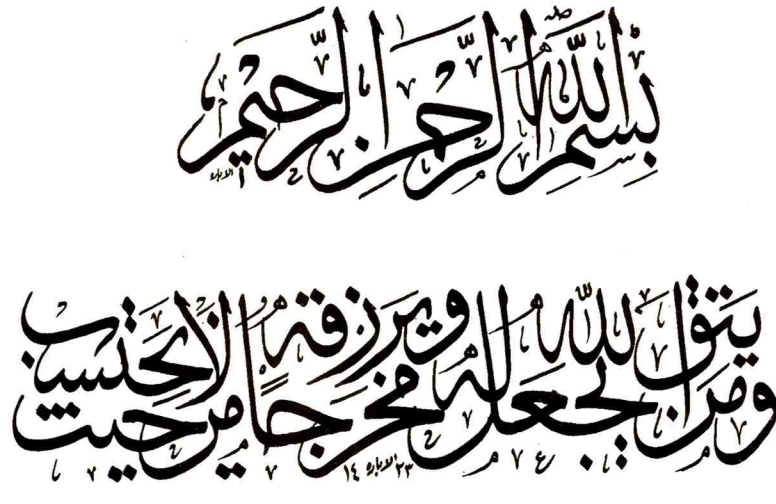 بِسْمِ اللّٰهِ الرَّحْمٰنِ الرَّحِيْمِ
ومن يتق الله يجعل له مخرجاً ويرزقه من حيث لا يحتسب